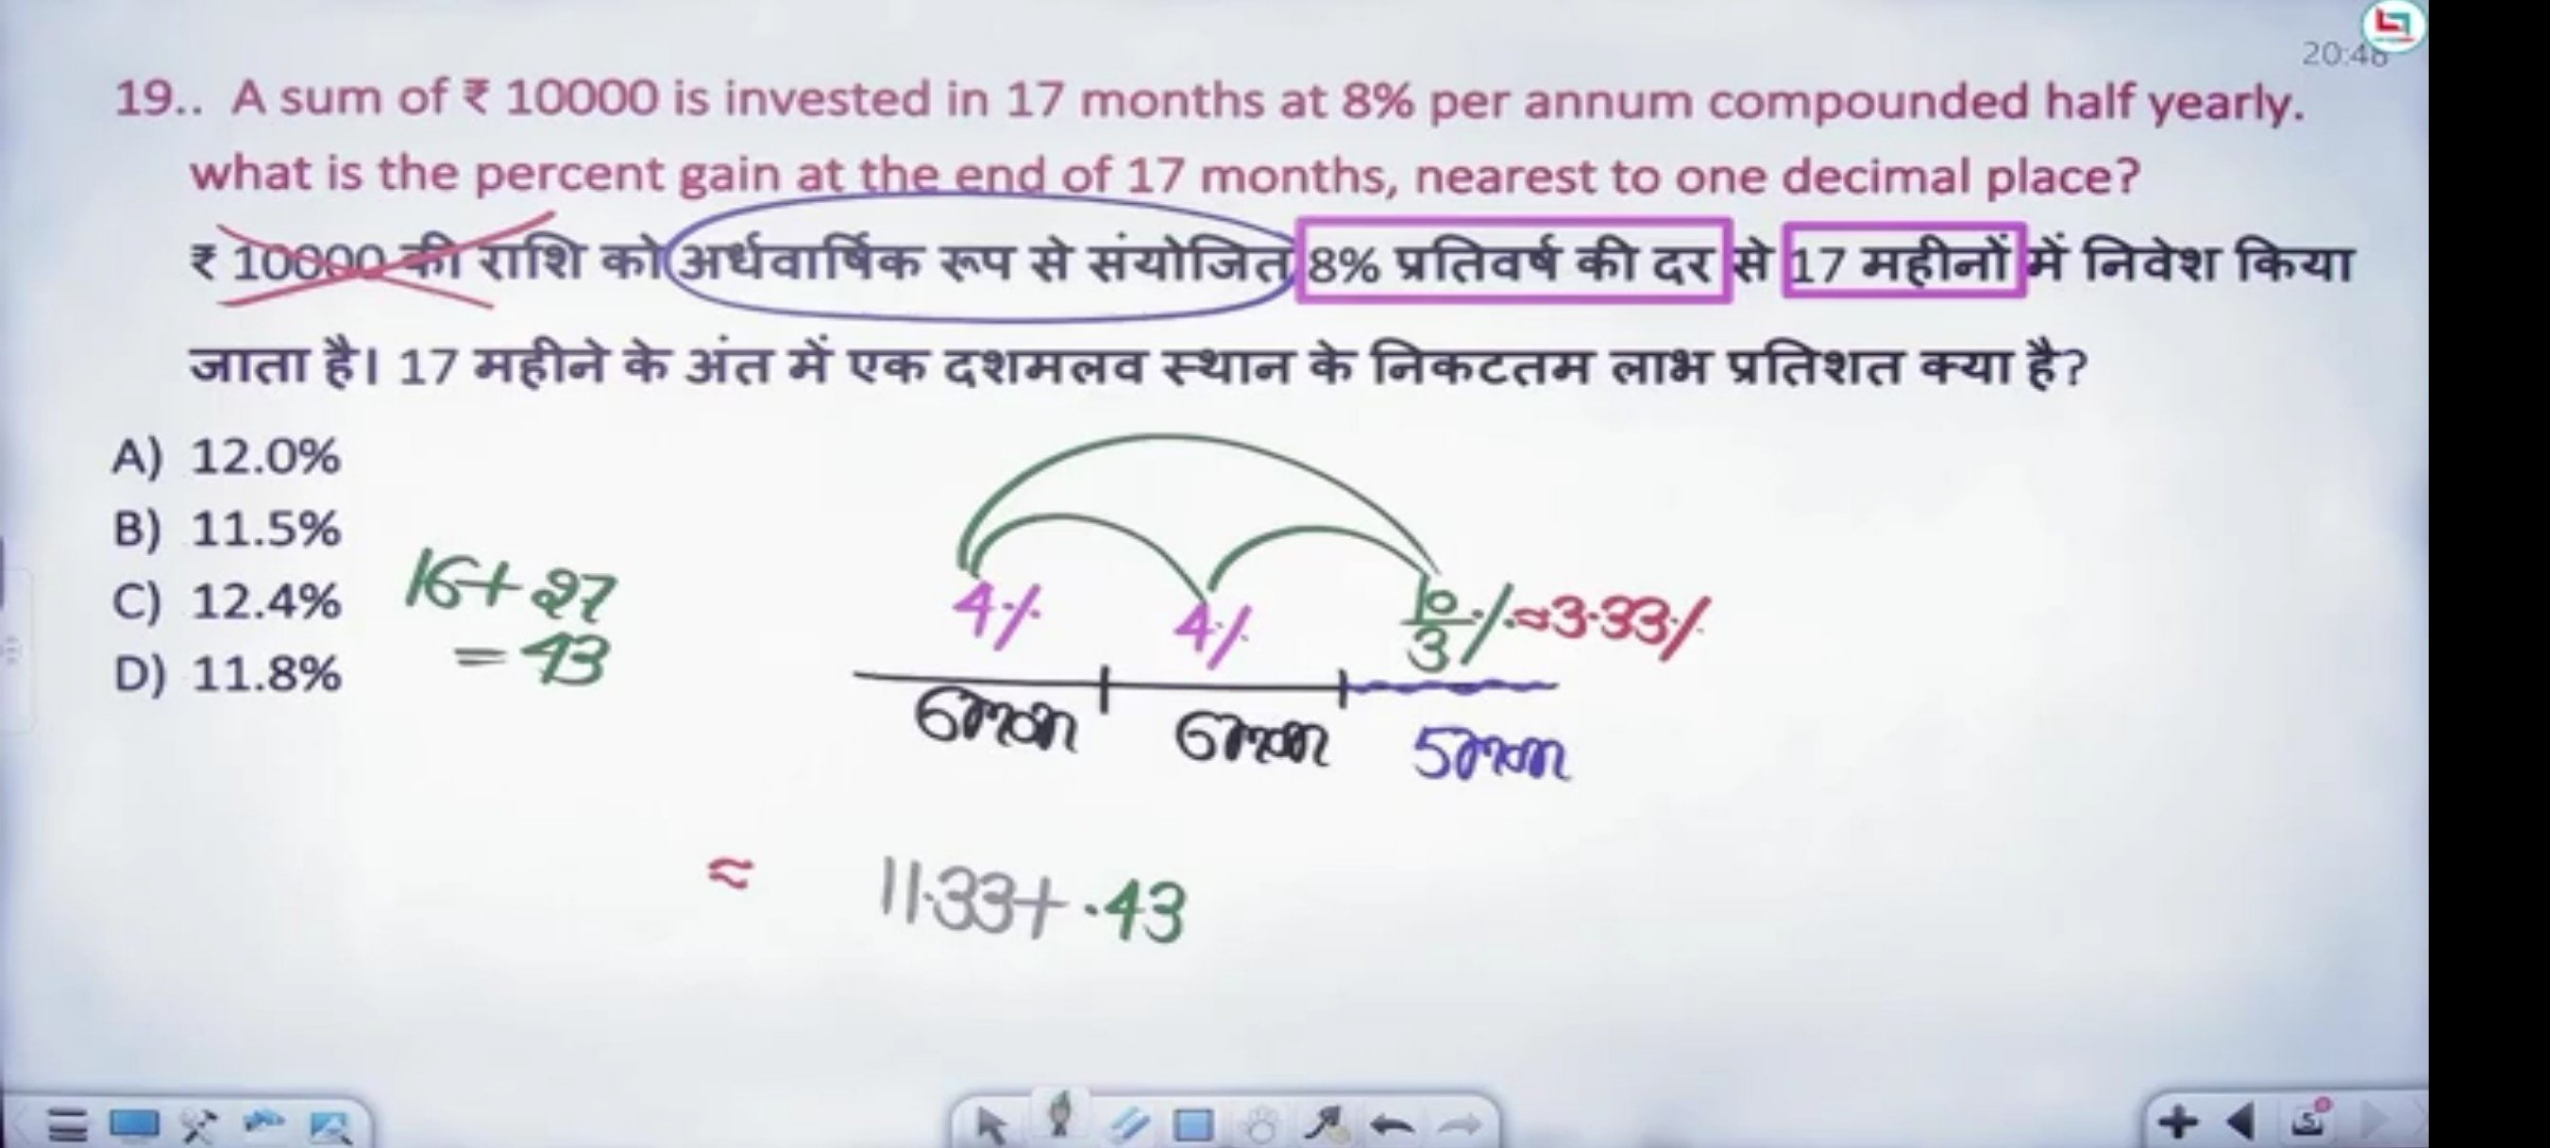 20:48
19.. A sum of ₹ 10000 is invested in 17 months at 8% per annum compounded half yearly.
what is the percent gain at the end of 17 months, nearest to one decimal place?
₹ 10000 की राशि को अर्धवार्षिक रूप से संयोजित 8% प्रतिवर्ष की दर से 17 महीनों में निवेश किया
जाता है। 17 महीने के अंत में एक दशमलव स्थान के निकटतम लाभ प्रतिशत क्या है?
A) 12.0%
B) 11.5%
C) 12.4%
D) 11.8%
16+27
=43
4% 4% 10/3% ≈3.33%
6mon 6mon 5mon
≈ 11.33+.43